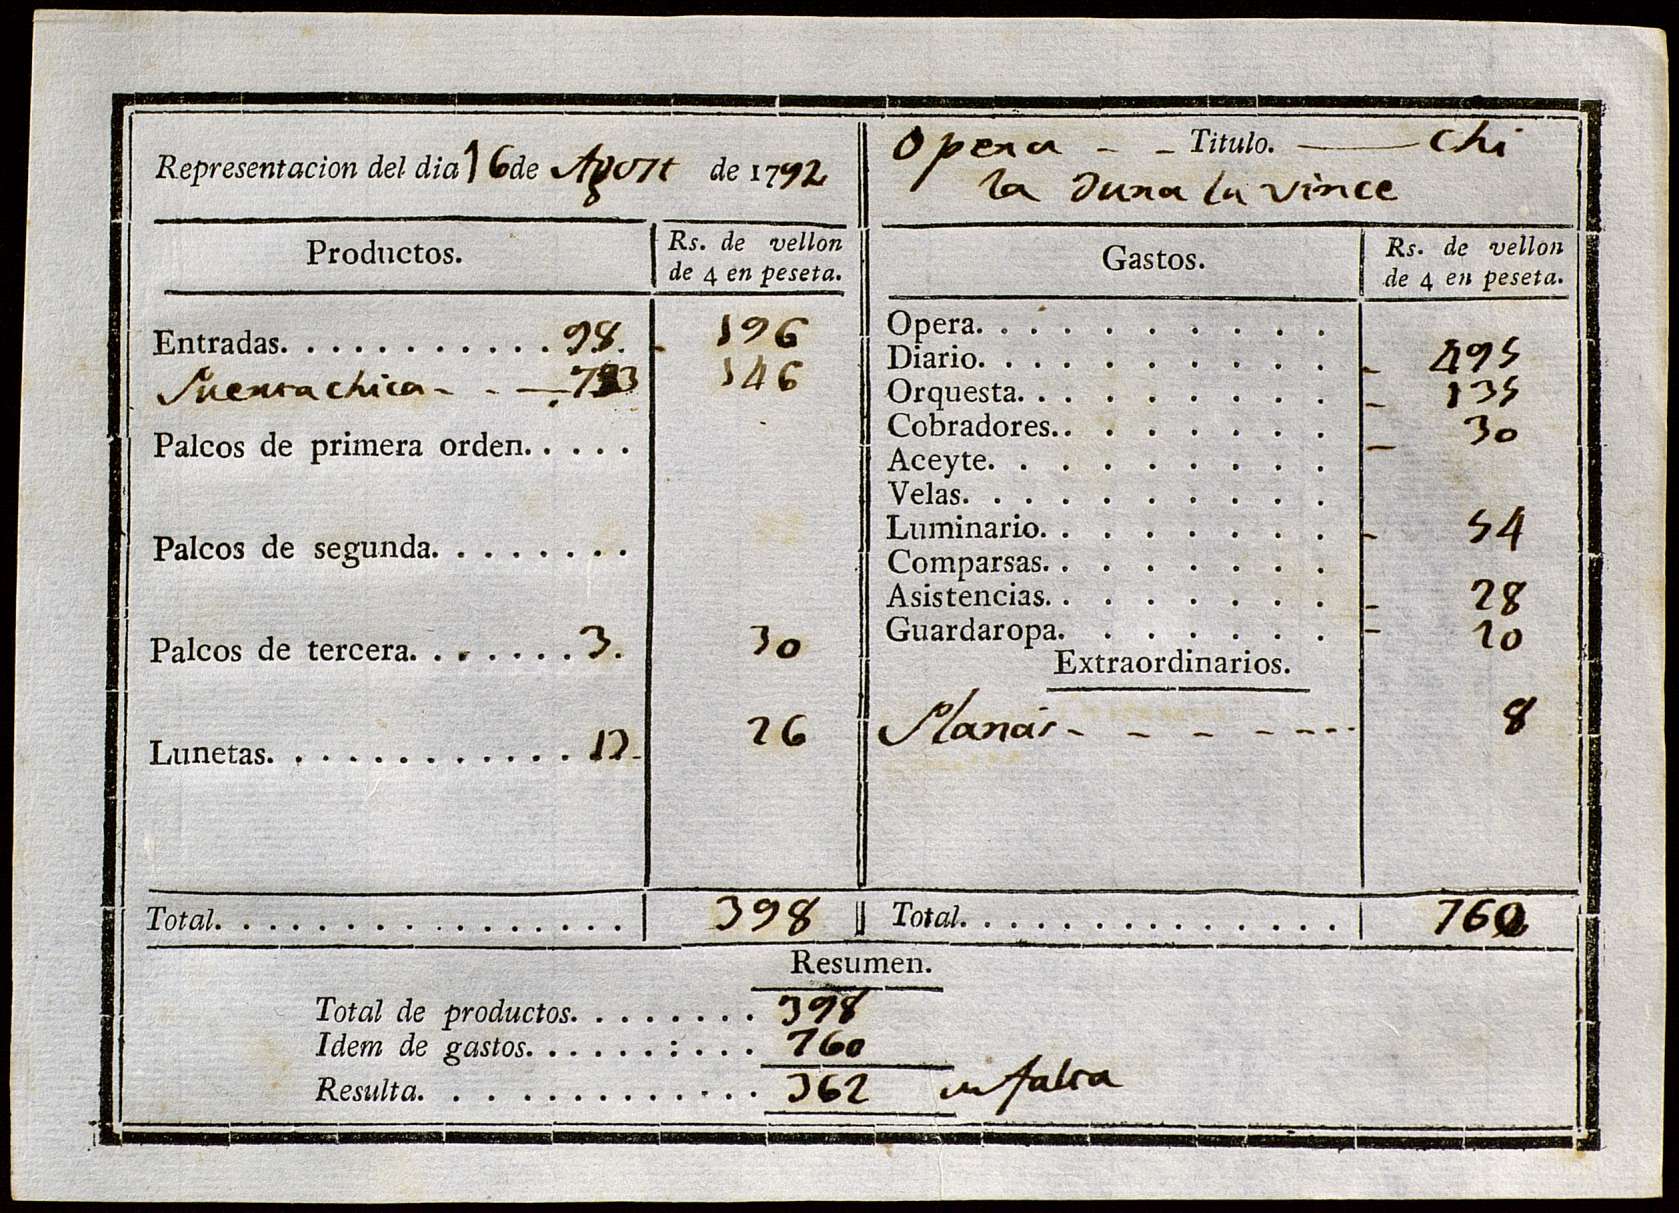 Representacion del dia 16 de Agost de 1792
Opera - - Titulo. — Chi
la dura la vince
Productos.
Rs. de vellon
de 4 en peseta.
Entradas. . . . . . . . . . . 98. 196
Puerta chica - - — 73 146
Palcos de primera orden. . . . .
Palcos de segunda. . . . . . . .
Palcos de tercera. . . . . . . 3. 30
Lunetas. . . . . . . . . . . . 13 26
Total. . . . . . . . . . . . . . . . . 398
Gastos.
Rs. de vellon
de 4 en peseta.
Opera. . . . . . . . . .
Diario. . . . . . . . . . - 495
Orquesta. . . . . . . . . - 135
Cobradores. . . . . . . . - 30
Aceyte. . . . . . . . . .
Velas. . . . . . . . . . .
Luminario. . . . . . . . - 54
Comparsas. . . . . . . .
Asistencias. . . . . . . . - 28
Guardaropa. . . . . . . - 10
Extraordinarios.
Planás - - - - - - - - 8
Total. . . . . . . . . . . . . . . . 760
Resumen.
Total de productos. . . . . . . . 398
Idem de gastos. . . . . . : . . . 760
Resulta. . . . . . . . . . . . . . 362 en falta